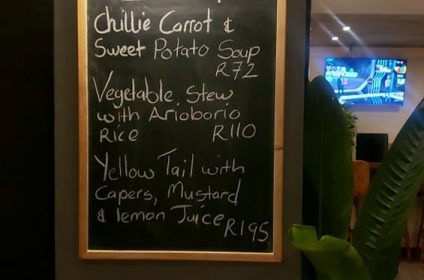 Chillie Carrot &
Sweet Potato Soup
R72
Vegetable Stew
with Arioborio
Rice R110
Yellow Tail with
Capers, Mustard
& lemon Juice R195